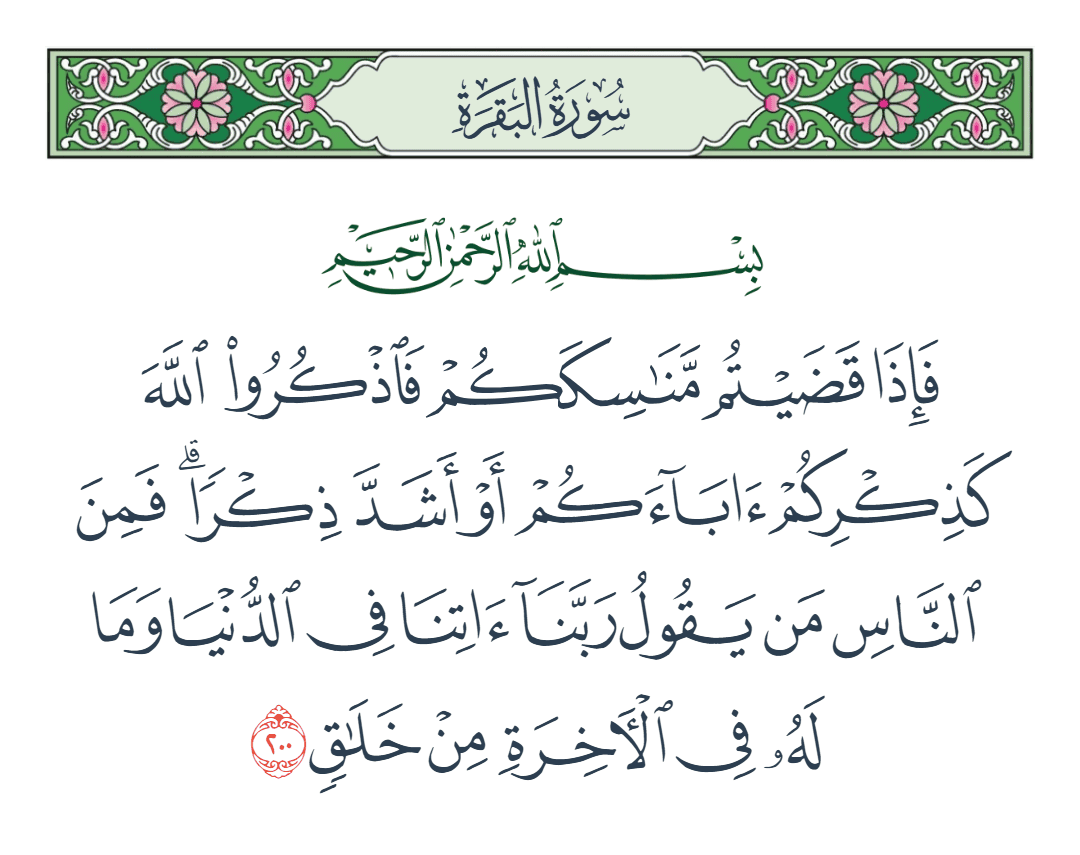 سُورَةُ البَقَرَةِ
بِسْمِ ٱللَّهِ ٱلرَّحْمَٰنِ ٱلرَّحِيمِ
فَإِذَا قَضَيْتُم مَّنَٰسِكَكُمْ فَٱذْكُرُوا۟ ٱللَّهَ
كَذِكْرِكُمْ ءَابَآءَكُمْ أَوْ أَشَدَّ ذِكْرًا ۗ فَمِنَ
ٱلنَّاسِ مَن يَقُولُ رَبَّنَآ ءَاتِنَا فِى ٱلدُّنْيَا وَمَا
لَهُۥ فِى ٱلْأَخِرَةِ مِنْ خَلَٰقٍ ٢٠٠